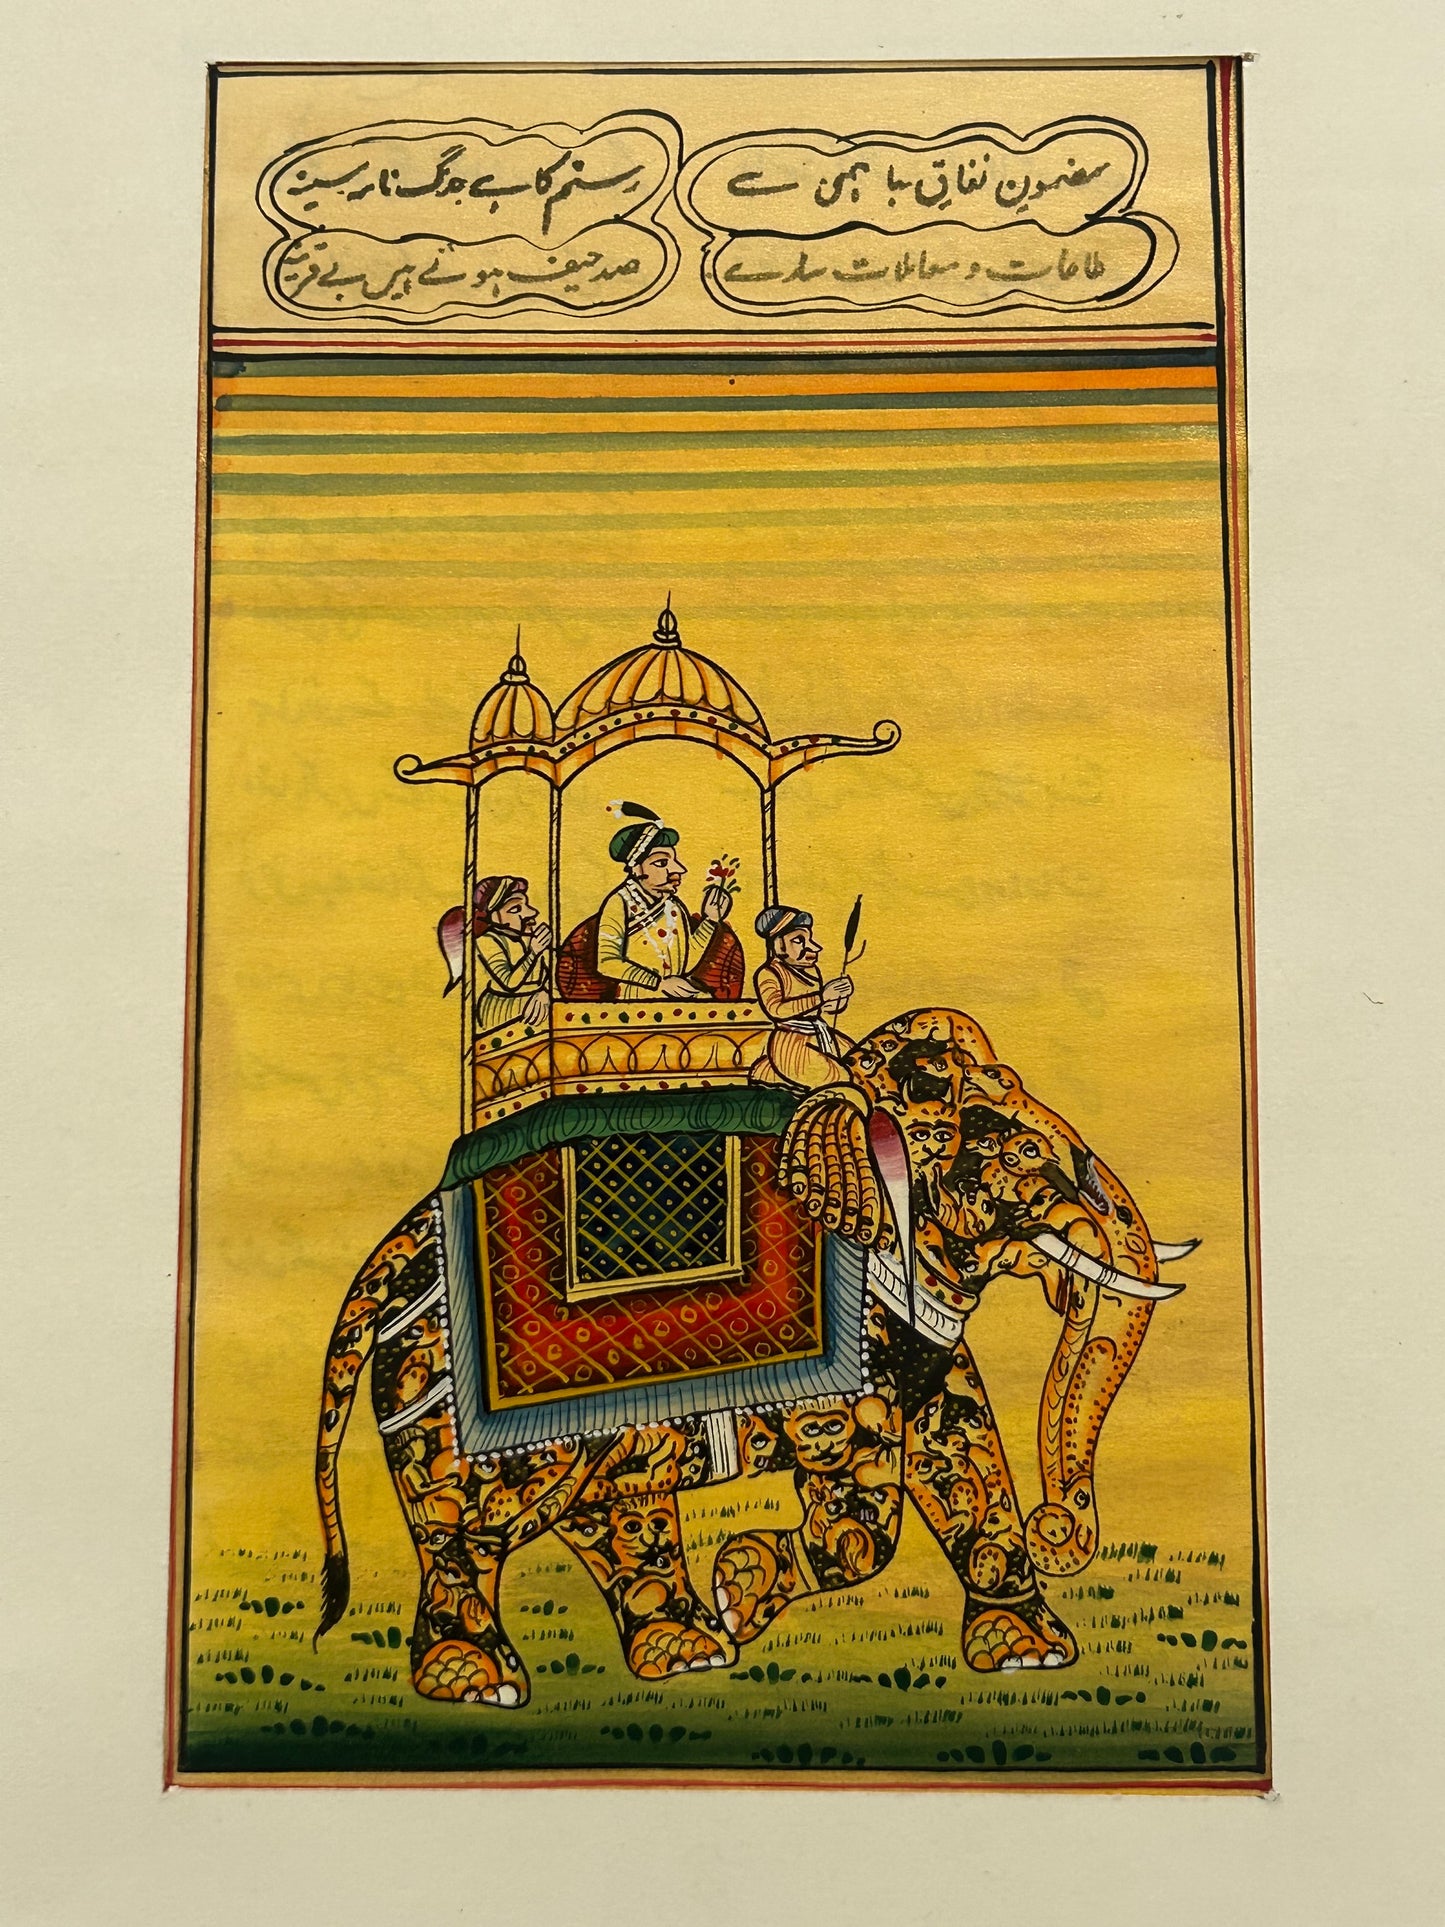 مضمون نفاق با ہمی سے
رستم کا ہے جگر نار سینہ
طاعات و معاملات سارے
صد حیف ہوئے ہیں بے قرینہ